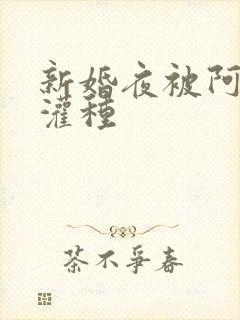 新婚夜被阿
灌種
茶不爭春